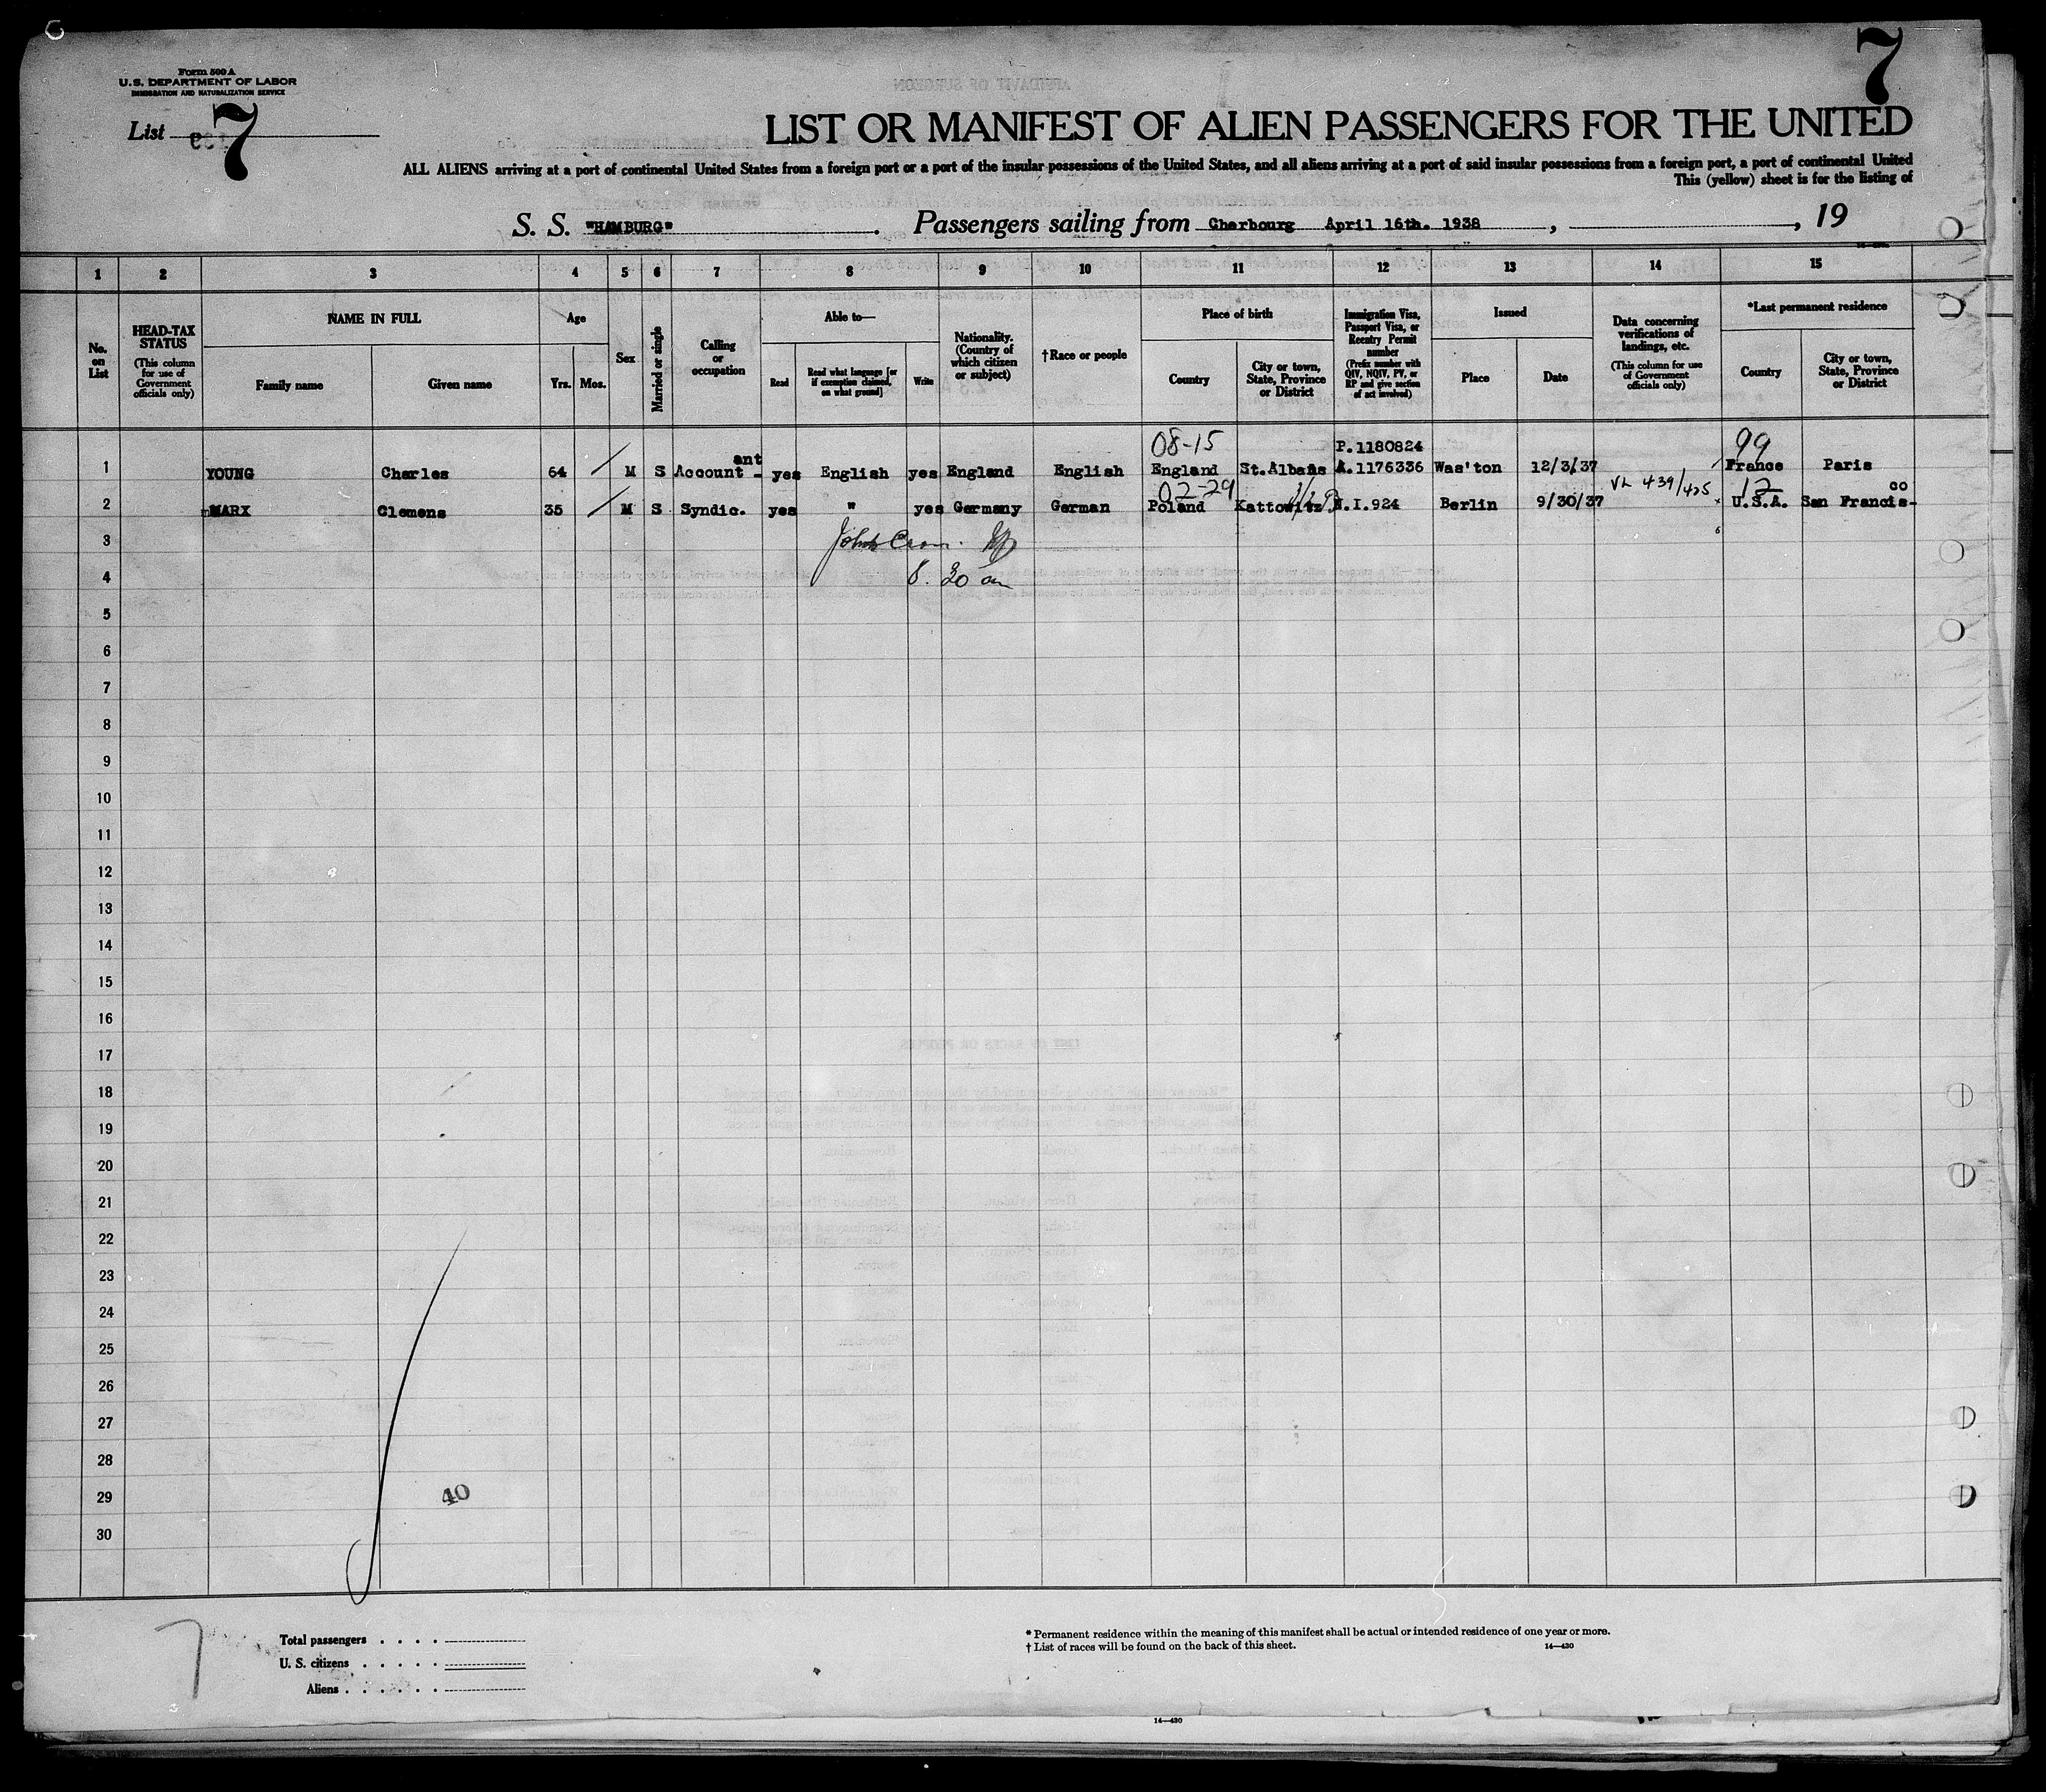 7
Form 500 A
U.S. DEPARTMENT OF LABOR
IMMIGRATION AND NATURALIZATION SERVICE
List 7
LIST OR MANIFEST OF ALIEN PASSENGERS FOR THE UNITED
ALL ALIENS arriving at a port of continental United States from a foreign port or a port of the insular possessions of the United States, and all aliens arriving at a port of said insular possessions from a foreign port, a port of continental United
This (yellow) sheet is for the listing of
S. S. "HAMBURG". Passengers sailing from Cherbourg April 16th. 1938, , 19
1 2 3 4 5 6 7 8 9 10 11 12 13 14 15
No. on List
HEAD-TAX STATUS (This column for use of Government officials only)
NAME IN FULL Family name Given name
Age Yrs. Mos.
Sex
Married or single
Calling or occupation
Able to— Read Read what language [or if exemption claimed, on what ground] Write
Nationality. (Country of which citizen or subject)
†Race or people
Place of birth Country City or town, State, Province or District
Immigration Visa, Passport Visa, or Reentry Permit number (Prefix number with QIV, NQIV, PV, or RP and give section of act involved)
Issued Place Date
Data concerning verifications of landings, etc. (This column for use of Government officials only)
*Last permanent residence Country City or town, State, Province or District
08-15 P.1180824 99
1 YOUNG Charles 64 M S Account-ant yes English yes England English England St.Albans A.1176336 Was'ton 12/3/37 France Paris
02-29 VL 439/425 12
2 MARX Clemens 35 M S Syndic. yes " yes Germany German Poland Kattowitz N.I.924 Berlin 9/30/37 U.S.A. San Francis-co
3
4 8.30 am
5
6
7
8
9
10
11
12
13
14
15
16
17
18
19
20
21
22
23
24
25
26
27
28
29 40
30
7
Total passengers . . . .
U. S. citizens . . . . .
Aliens . . . . . .
* Permanent residence within the meaning of this manifest shall be actual or intended residence of one year or more.
† List of races will be found on the back of this sheet. 14—430
14—430